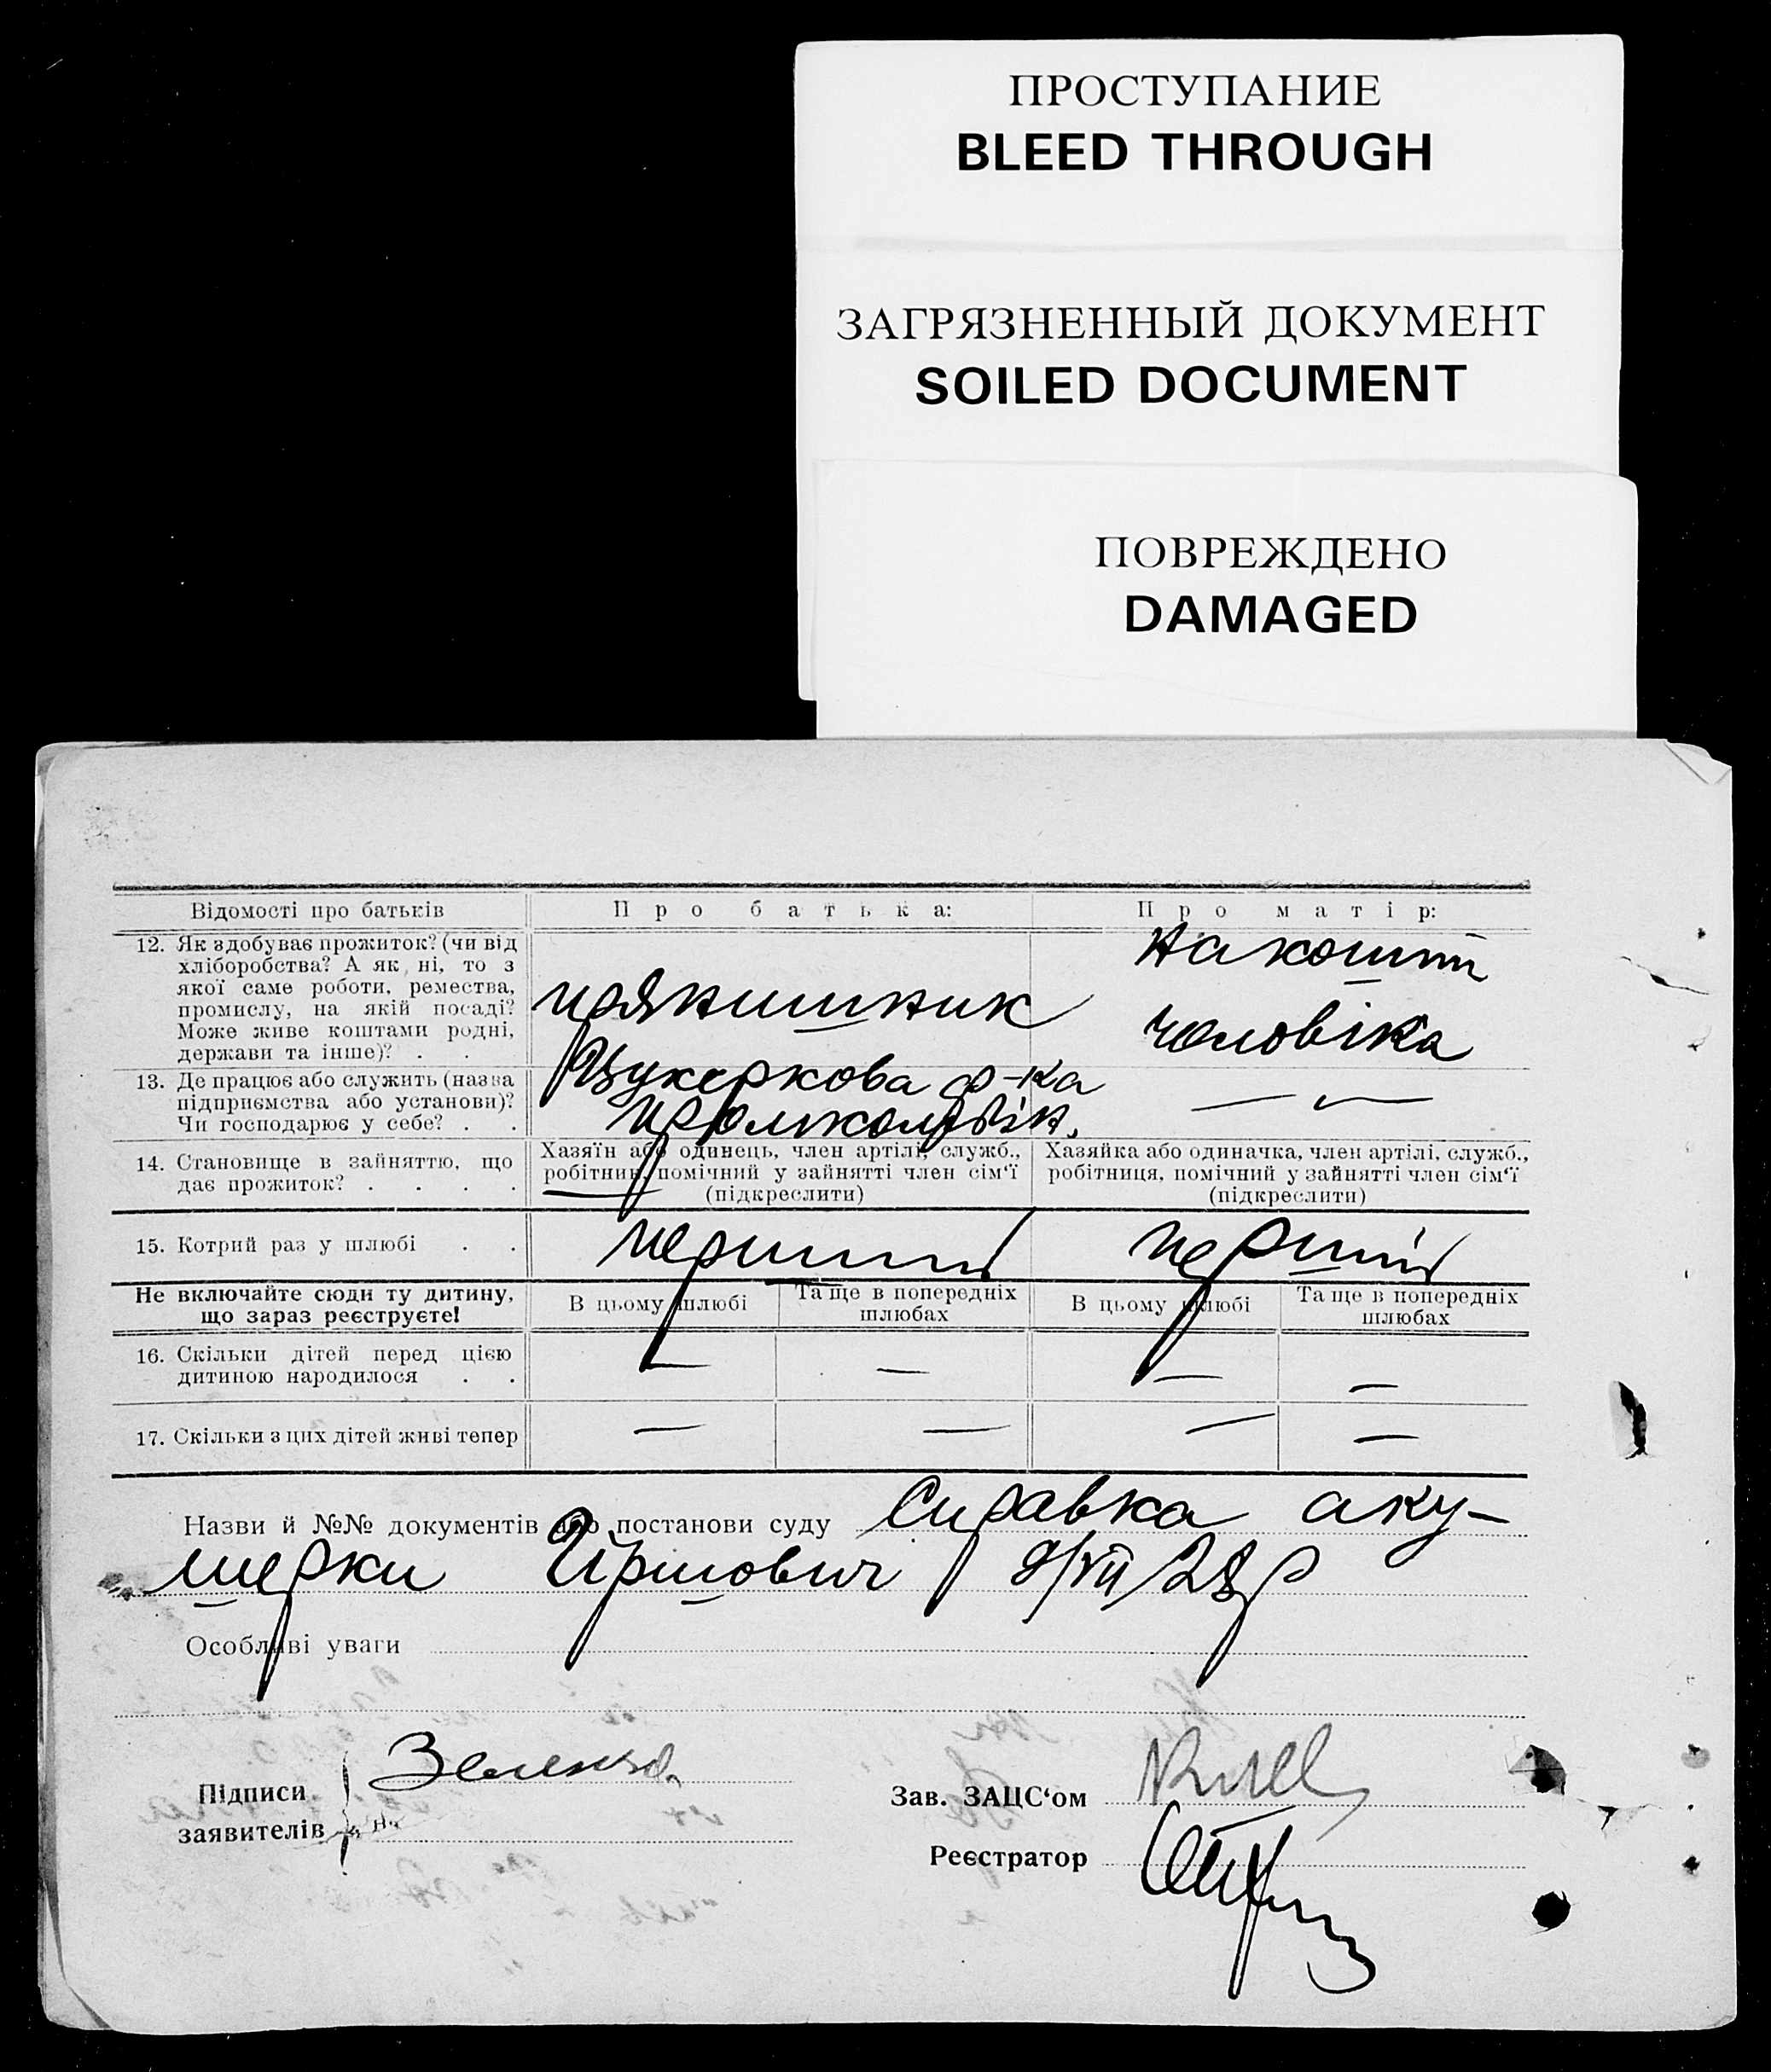 ПРОСТУПАНИЕ
BLEED THROUGH
ЗАГРЯЗНЕННЫЙ ДОКУМЕНТ
SOILED DOCUMENT
ПОВРЕЖДЕНО
DAMAGED
Відомості про батьків
Про батька:
Про матір:
12. Як здобуває прожиток? (чи від
хліборобства? А як ні, то з
якої саме роботи, ремества,
промислу, на якій посаді?
Може живе коштами родні,
держави та інше)? . .
прянишник
На кошти
чоловіка
13. Де працює або служить (назва
підприємства або установи)?
Чи господарює у себе? . .
Цукеркова ф-ка
— " —
14. Становище в зайняттю, що
дає прожиток? . . . .
Хазяїн або одинець, член артілі, служб.,
робітник, помічний у зайнятті член сім'ї
(підкреслити)
Хазяйка або одиначка, член артілі, служб.,
робітниця, помічний у зайнятті член сім'ї
(підкреслити)
15. Котрий раз у шлюбі . .
перший
перший
Не включайте сюди ту дитину,
що зараз реєструєте!
В цьому шлюбі
Та ще в попередніх
шлюбах
В цьому шлюбі
Та ще в попередніх
шлюбах
16. Скільки дітей перед цією
дитиною народилося . .
— — — —
17. Скільки з цих дітей живі тепер
— — — —
Назви й №№ документів або постанови суду Справка аку-
шерки 28 р
Особливі уваги
Підписи
заявителів
Зав. ЗАЦС'ом
Реєстратор